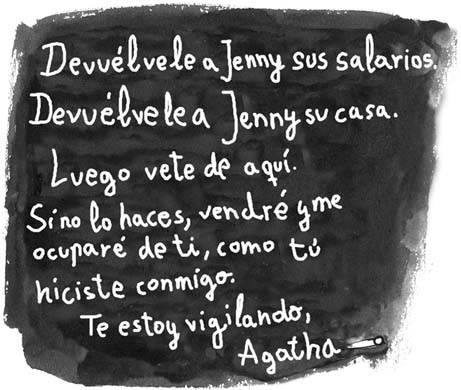 Devuélvele a Jenny sus salarios.
Devuélvele a Jenny su casa.
Luego vete de aquí.
Si no lo haces, vendré y me
ocuparé de ti, como tú
hiciste conmigo.
Te estoy vigilando,
Agatha